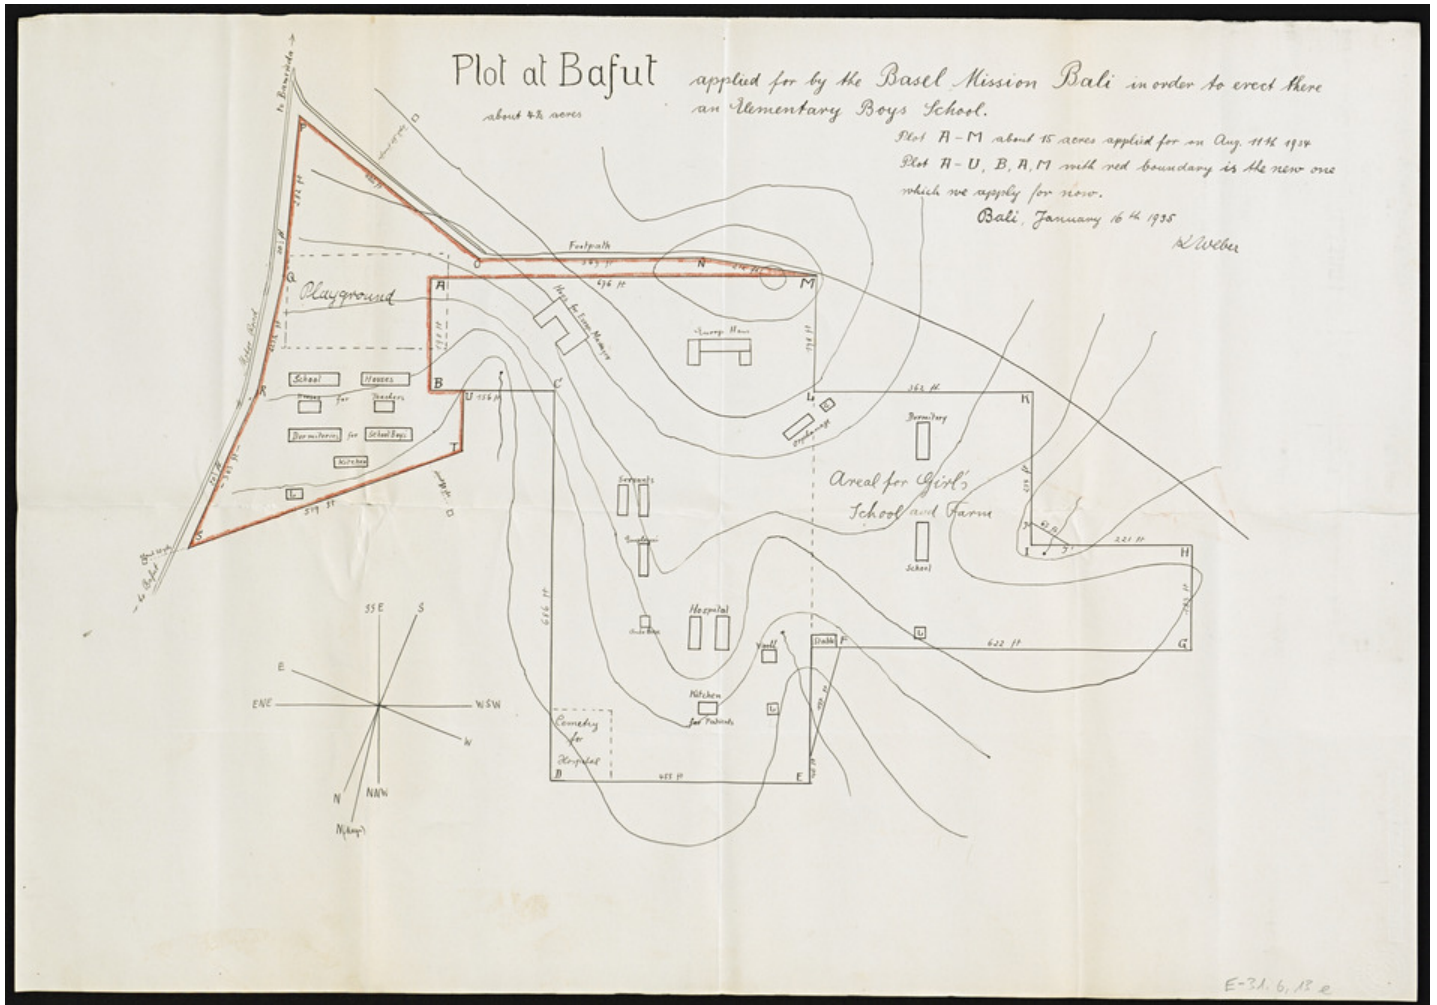 Plot at Bafut
applied for by the Basel Mission Bali in order to erect there
an Elementary Boys School.
about 4½ acres
Plot A-M about 15 acres applied for on Aug. 11th 1934
Plot A-U, B, A, M with red boundary is the new one
which we apply for now.
Bali, January 16th 1935
K Weber
to Bamenda
P
O
Footpath
N
M
A
696 ft
Q
Playground
Motor Road
House for Europ. Manager
Europ. House
R
School
Houses
Houses for Teachers
Dormitories for School Boys
Kitchen
L
B
U
156 ft
C
T
519 ft
S
to Bafut
L
362 ft
K
L
Orphanage
Dormitory
Areal for Girl's
School and Farm
School
I
J
221 ft
H
G
622 ft
F
Stable
L
Servants
Hospital
Kitchen
for Patients
L
Cemetry
for
Hospital
D
455 ft
E
SSE
S
E
ENE
WSW
W
N
NNW
N(magn)
E-31.6,13 e